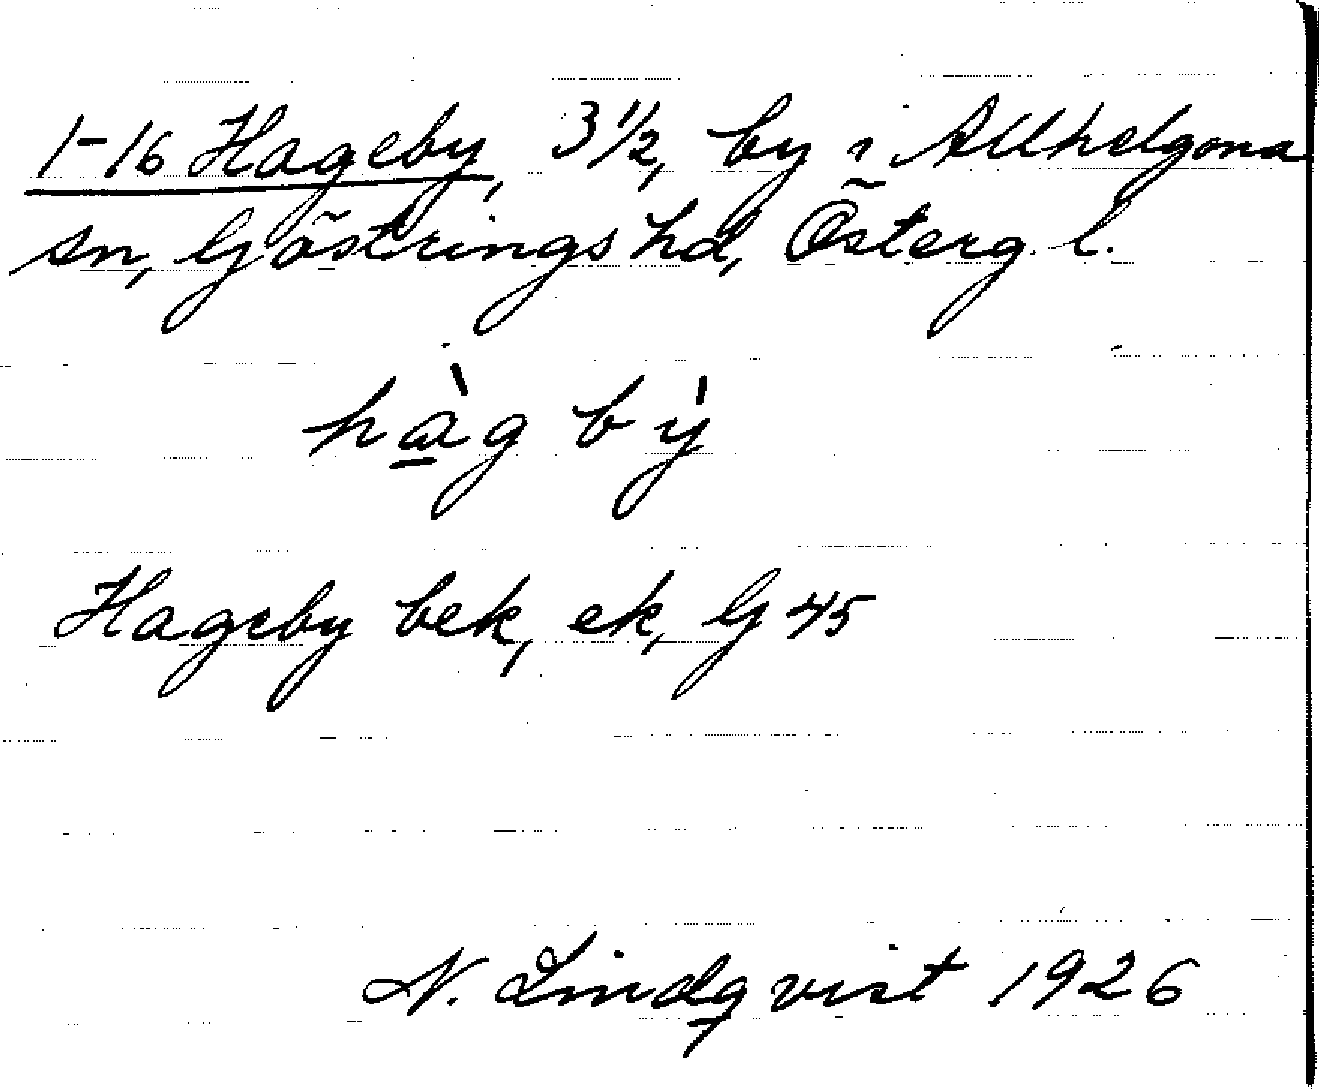 1-16 Hageby, 3 1/2, by i Allhelgona
sn, Göstrings hd, Österg. l.
hàg bỳ
Hageby bek, ek, G 45
N. Lindqvist 1926